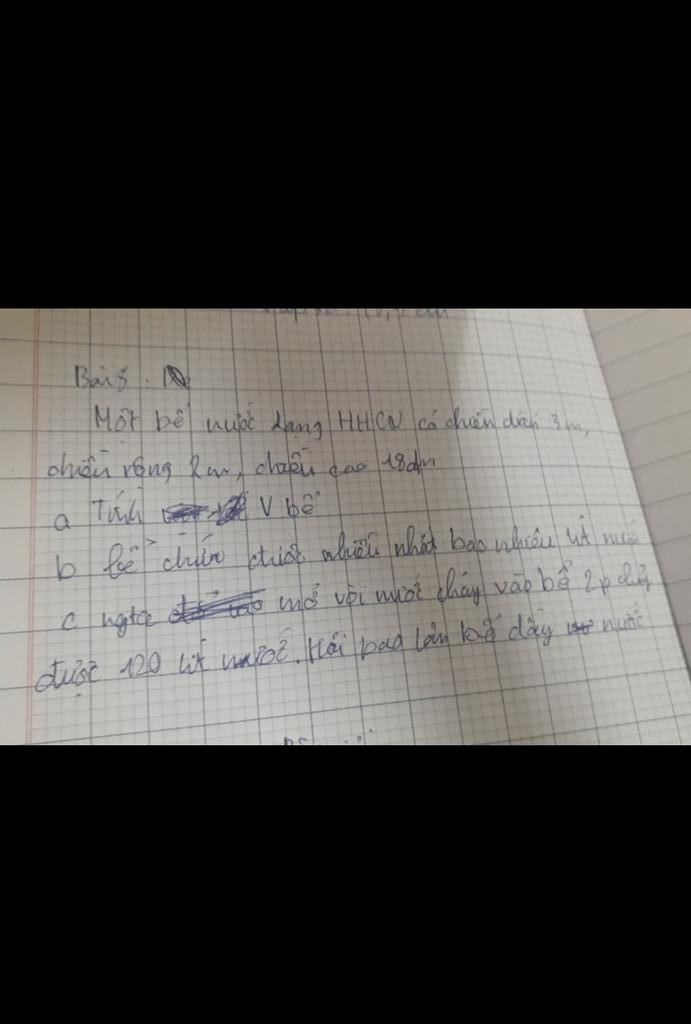 Bài 8.
Một bể nước dạng HHCN có chiều dài 3m,
chiều rộng 2m, chiều cao 18dm
a Tính V bể
b bể chứa được nhiều nhất bao nhiêu lít nước
c ngta mở vòi nước chảy vào bể 2p chảy
được 120 lít nước. Hỏi bao lâu bể đầy nước